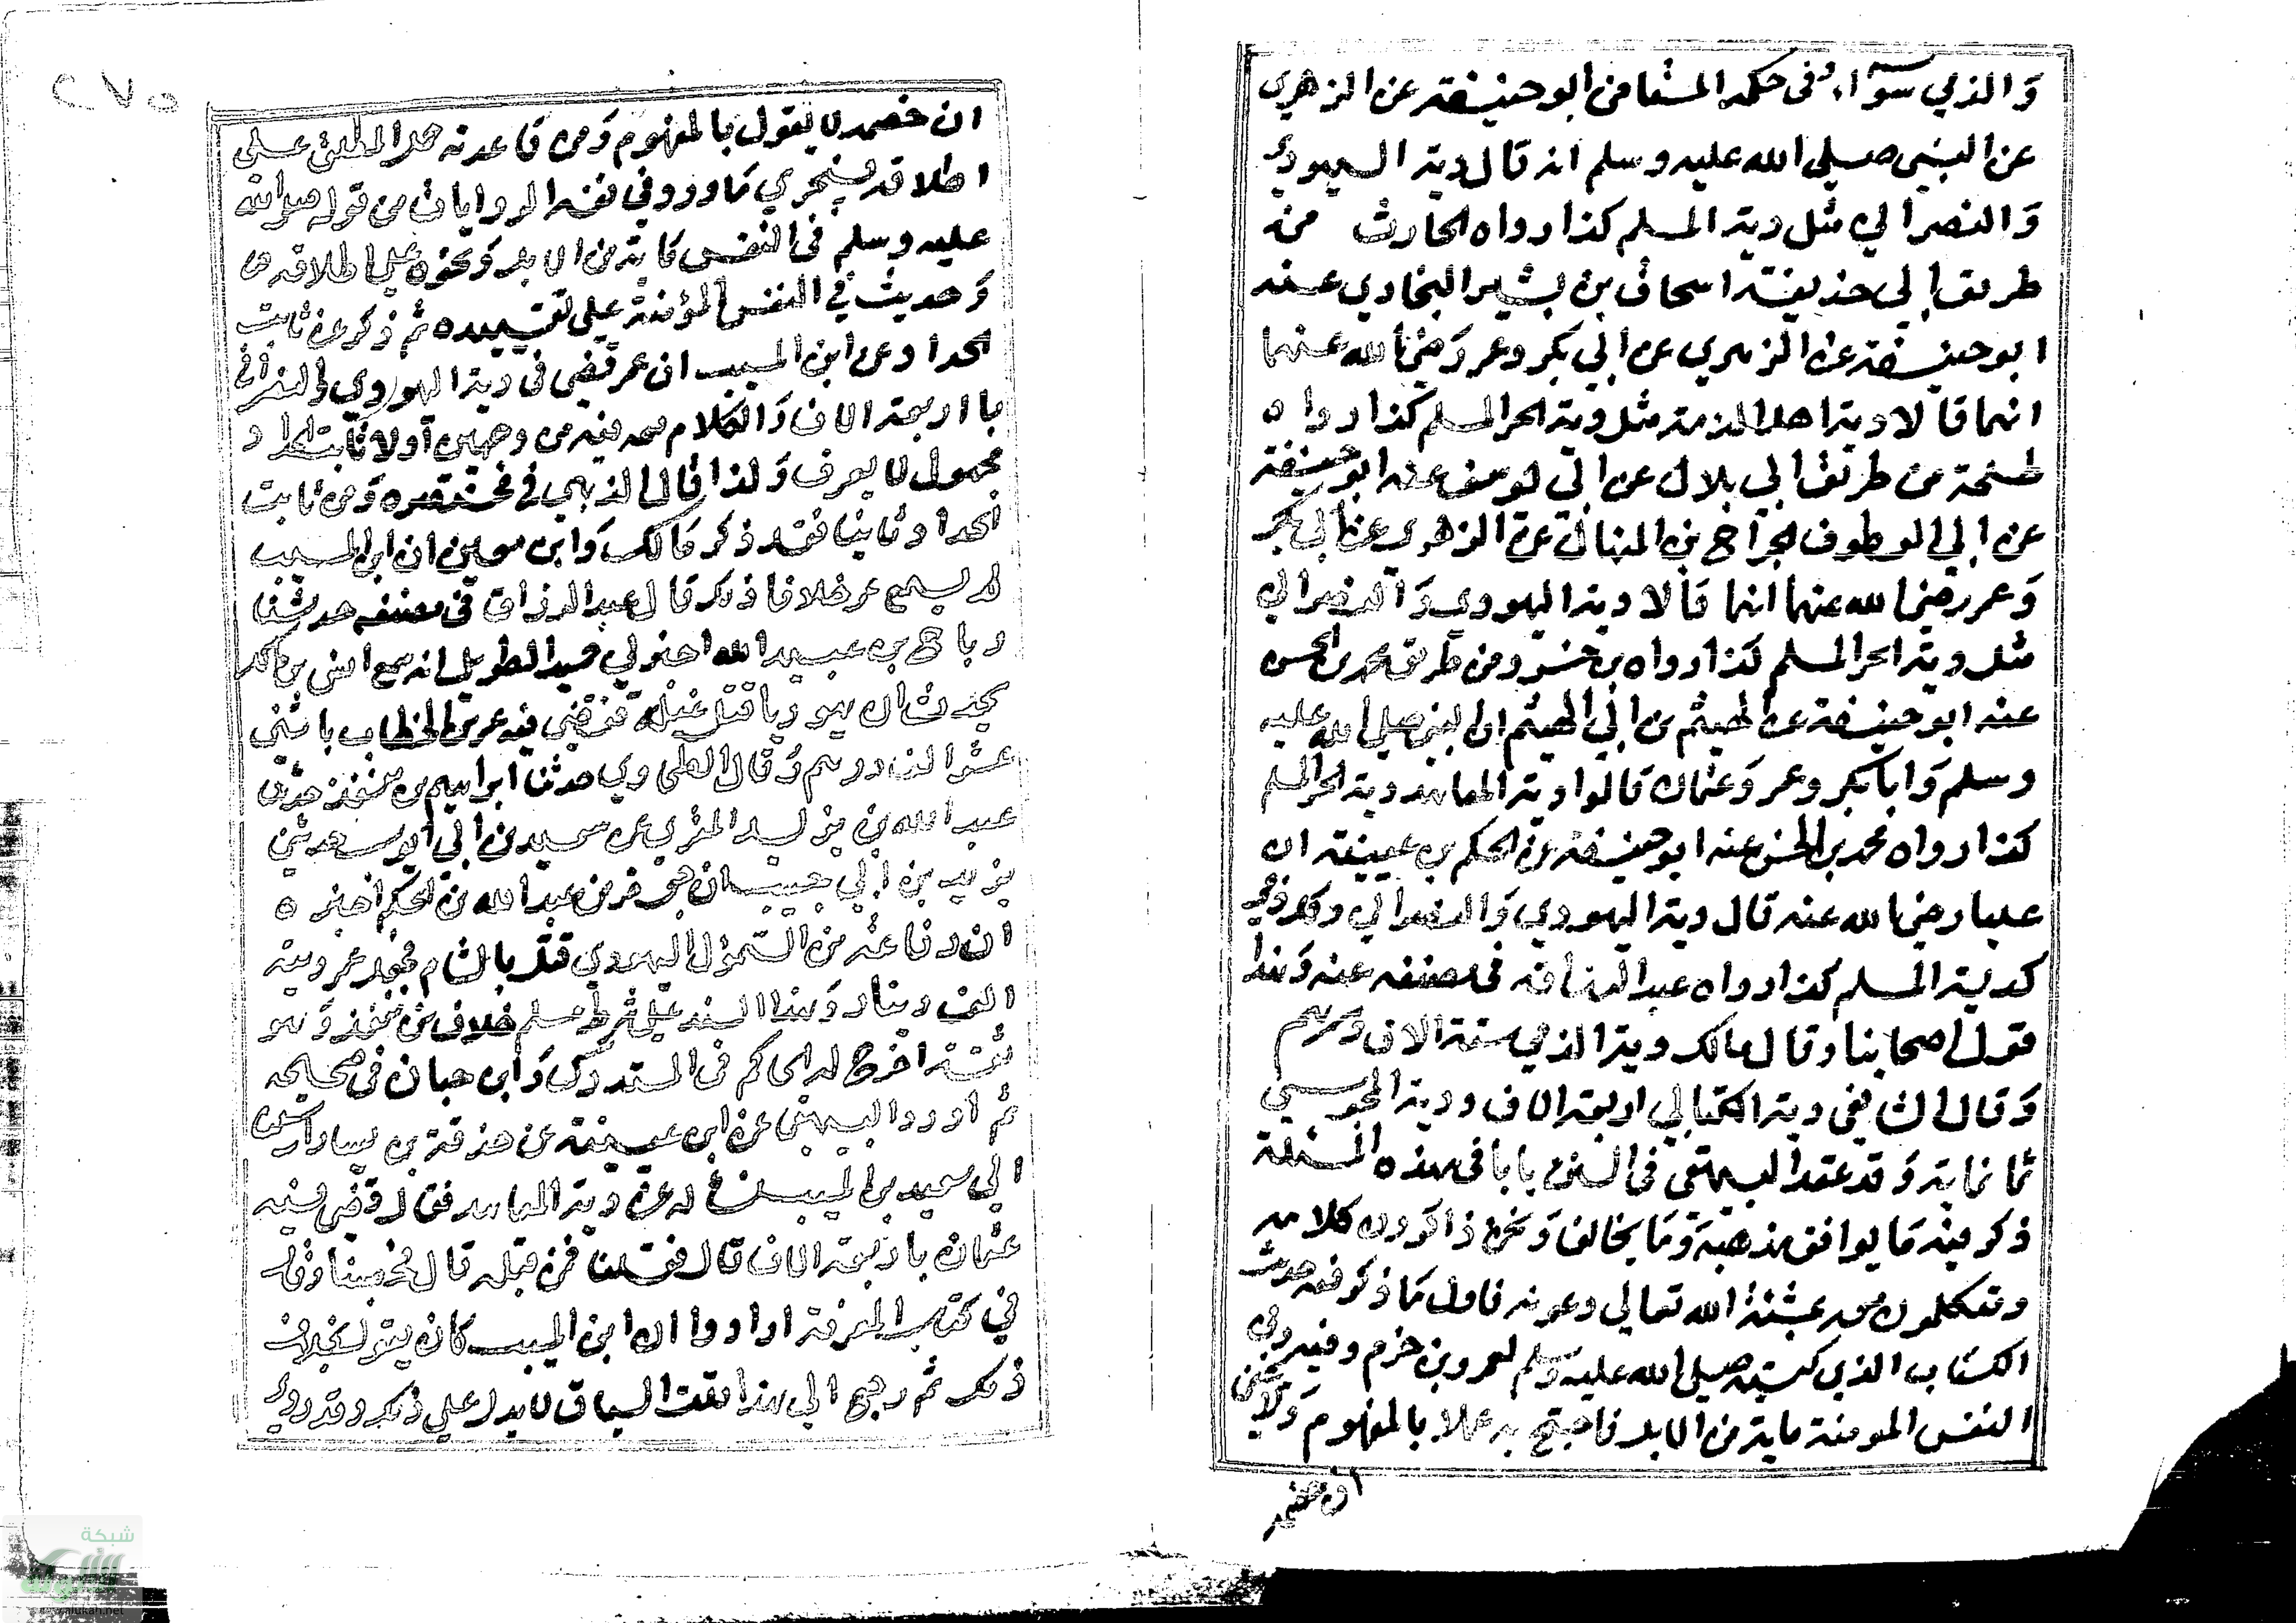 وَالذمي سَوآء في حكمه المستامن ابو حنيفة عن الزهري
عن النبي صلي الله عليه وسلم انه قال دية اليهودي
وَالنصراني مثل دية المسلم كذا رواه الحارث من
طريق أبي حذيفة اسحاق بن بشير البخاري عنه
ابو حنيفة عن الزهري عن ابي بكر وعمر رَضي الله عنهما
انهما قالا دية اهل الذمة مثل دية الحر المسلم كذا رواه
طلحة من طريق ابي بلال عن ابي يوسف عنه ابو حنيفة
عن ابي العطوف الجراح بن المنهال عن الزهري عن ابي بكر
وَعمر رضي الله عنهما انهما قالا دية اليهودي وَالنصراني
مثل دية الحر المسلم كذا رواه بن خسرو من طريق محمد بن الحسن
عنه ابو حنيفة عن الهيثم بن ابي الهيثم ان النبي صلي الله عليه
وسلم وَابا بكر وعمر وَعثمان قالوا دية المعاهد دية الحر المسلم
كذا رواه محمد بن الحسن عنه ابو حنيفة عن الحكم بن عيينة ان
عليا رضي الله عنه قال دية اليهودي وَالنصراني وكل ذمي
كدية المسلم كذا رواه عبد الرزاق في مصنفه عنه وَهذا
قول اصحابنا وقال مالك دية الذمي ستة الاف درهم
وَقال الشافعي دية الكتابي اربعة الاف ودية المجوسي
ثمانماية وَقد عقد البيهقي في السنن بابا في هذه المسئلة
ذكر فيه مَا يوافق مذهبه وَمَا يخالف وَنحن ذاكرون كلامه
ومتكلمون معه بمشيئة الله تعالي وعونه فاول مَا ذكر فيه حديث
الكتاب الذي كتبه صلي الله عليه وسلم لعمرو بن حزم وفيه وفي
النفس المومنة ماية من الابل فاحتج به عملا بالمفهوم وَلا يخفي
ان خصمه
٢٧٥
ان خصمه لا يقول بالمفهوم وَمن قاعدته حمل المطلق علي
اطلاقه فيجري مَا ورد في بعض الروايات من قوله صلي الله
عليه وسلم في النفس ماية من الابل وَنحوه علي اطلاقه
وَحديث في النفس المؤمنة علي تقييده ثم ذكر عن ثابت
الحداد عن ابن المسيب ان عمر قضي في دية اليهودي والنصراني
باربعة الاف وَالكلام معه فيه من وجهين أولا ثابت الحداد
مجهول لا يعرف وَلذا قال الذهبي في مختصره وَمن ثابت
الحداد وثانيا فقد ذكر مَالك وَابن معين ان ابن المسيب
لم يسمع عمر خلاف ما ذكر قال عبد الرزاق في مصنفه حدثنا
رباح بن عبيد الله اخبرني حميد الطويل انه سمع انس بن مالك
يحدث ان يهوديا قتل غيلة فقضي فيه عمر بن الخطاب باثني
عشر الف درهم وَقال الطحاوي حدثنا ابراهيم بن منقذ حدثنا
عبد الله بن يزيد المقري عن سعيد بن ابي ايوب حدثني
يزيد بن ابي حبيب ان جعفر بن عبد الله بن الحكم اخبره
ان رفاعة بن السمؤل اليهودي قتل بالشام فجعل عمر ديته
الف دينار وَهذا السند علي شرط مسلم خلاف بن منقذ وَهو
ثقة اخرج له الحاكم في المستدرك وَابن حبان في صحيحه
ثم اورد البيهقي عن ابن عيينة عن صدقة بن يسار ارسلنا
الي سعيد بن المسيب نسأله عن دية المعاهد فقال قضي فيه
عثمان باربعة الاف قال فقلنا فمن قبله قال فحصبنا وقال
في كتاب المعرفة ارادوا ان ابن المسيب كان يقول بخلاف
ذلك ثم رجع الي هذا قلت السياق لا يدل علي ذلك وقد روي
شبكة
الألوكة
www.alukah.net